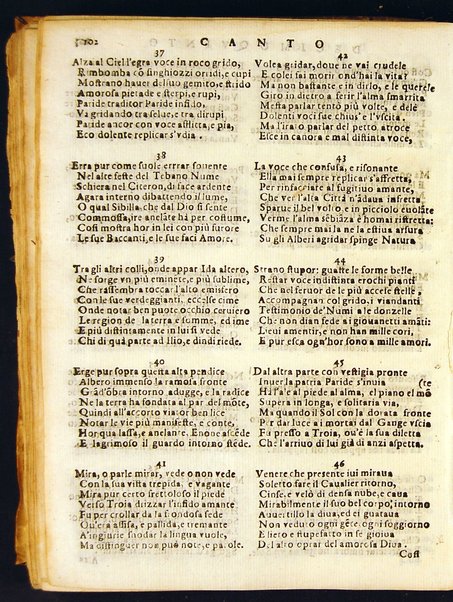 202 CANTO
37
Alza al Ciel l'egra voce in roco grido,
Rimbomba cō singhiozzi orridi, e cupi
Mostran hauer del suo gemito, e strido
Amorosa pietade e sterpi, e rupi,
Paride traditor Paride infido,
Va gridando tra selue, e tra dirupi,
Paride ancor con voce afflitta, e pia,
Eco dolente replicar s'vdia.
38
Erra pur come suole errar souente
Nel alte feste del Tebano Nume
Schiera nel Citeron, di face ardente
Agara interno dibattendo il lume,
O qual Sibilla che dal Dio si sente
Commossa, ire anelāte hà per costume,
Così mostra hor in lei con più furore
Le sue Baccanti, e le sue faci Amore.
39
Tra gli altri colli, onde appar Ida altero,
Ne sorge vn più eminente, e più sublime,
Che assembra toccar l'alto emisfero
Con le sue verdeggianti, eccelse cime
Onde notar ben puote occhio ceruiero
Le region de la terra e somme, ed ime
E più distintamente in lui si vede
Chi di quà parte ad Ilio, e dindi riede.
40
Erge pur sopra questa alta pendice
Albero immenso la ramosa fronte
Grād'ōbra intorno adugge, e la radice
Ne la terra fondata al par del mōte,
Quindi all'accorto viator ben lice
Notar le vie più manifeste, e conte.
Hor qua lassa, e anelante. Enone ascēde
E lagrimoso il guardo intorno stēde.
41
Mira, o parle mirar, vede o non vede
Con la sua vista trepida, e vagante
Mira pur certo frettoloso il piede
Verso Troia drizzar l'infido amante
Fu per crollar da la frondosa sede
Qu'era assisa, e pallida, e tremante
A'ngiurie snodar la lingua vuole,
Ma distinguer non può note, e parole.
42
Volea gridar, doue ne vai crudele
E colei fai morir ond'hai la vita?
Ma non bastante in dirlo, e le querele
Giro in dietro a ferir l'alma smarrita
Mesta parlar tentò più volte, e dele
Dolenti voci sue chius'è l'vscita.
Ma l'ira ò parlar del petto atroce
Esce in canora e mal distinta voce,
43
La voce che confusa, e risonante
Ella mai sempre replicar s'affretta,
Per rinfacciare al fugitiuo amante,
Che ver l'alta Città n'ādaua infretta
Sparue il bel volto e in picciolo euolāte
Verme l'alma sēbiāza è homai ristretta:
Che sempre mai la ne la estiua arsura
Su gli Alberi agridar spinge Natura
44
Strano stupor: guaste le forme belle
Restar voce indistinta e rochi pianti
Che nel feruor de le più accese stelle,
Accompagnan col grido, i viandanti
Testimonio de'Numi a le donzelle
Che non dian fede a i giouanetti amāti:
Lieui amenti, e non han mille cori,
E pur esca ogn'hor sono a mille amori.
45
Dal altra parte con vestigia pronte
Inuer la patria Paride s'inuia (te
Hà l'asè al piede al alma, el piano el mō
Supera in longa, e solitaria via,
Ma quando il Sol con la dorata fronte
Par da luce ai mortai dal Gange vscìa
Fu presso a Troia, ou'è la sua diletta
Che l'arriuo di lui già di anzi aspetta.
46
Venere che presente iui miraua
Soletto fare il Caualier ritorno,
Cinse, e velò di densa nube, e caua
Mirabilmente il suo bel corpo, intorno
Auuertillo la diua, ed ei guataua
Non veduto ogni gēte, ogni soggiorno
E lieto e riuestato in se gioiua
Del alto oprar del amorosa Diua.
Così